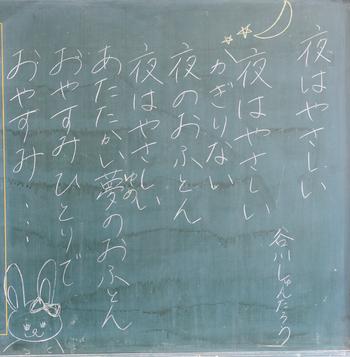 夜はやさしい
谷川しゅんたろう
夜はやさしい
かぎりない
夜のおふとん
夜はやさしい
あたたかい夢のおふとん
ゆめ
おやすみひとりで
おやすみ…